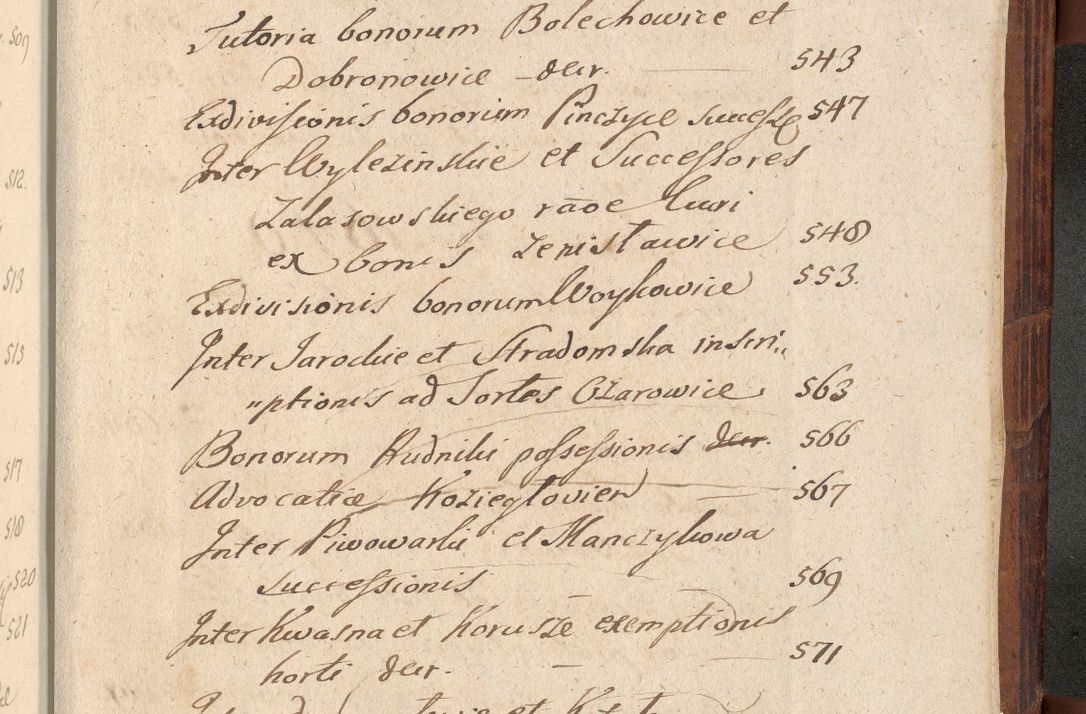 Tutoria bonorum Bolechowice et
Dobronowice decr. 543
Exdivisionis bonorum Pinczyce success 547
Inter Wylezinskie et Successores
Zalasowskiego raõe Curi
ex bonis Zenisławice 548
Exdivisionis bonorum Woykowice 553.
Inter Jarockie et Stradomska inscri„
„ptionis ad Sortes Ożarowice 563
Bonorum Rudniki possessionis decr. 566
Advocatiæ Kozieglovien 567
Inter Piwowarki et Manczykowa
successionis 569
Inter Kwasna et Korusze exemptionis
horti decr. 571
509
512.
513
515
517
518
520
521